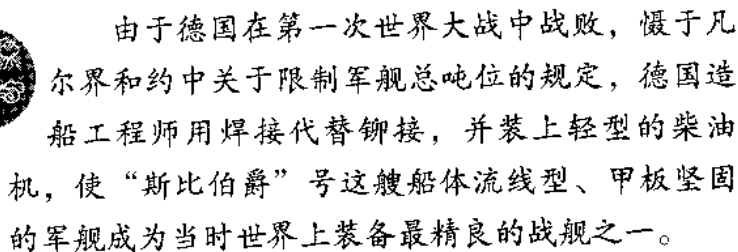 由于德国在第一次世界大战中战败，慑于凡
尔界和约中关于限制军舰总吨位的规定，德国造
船工程师用焊接代替铆接，并装上轻型的柴油
机，使“斯比伯爵”号这艘船体流线型、甲板坚固
的军舰成为当时世界上装备最精良的战舰之一。